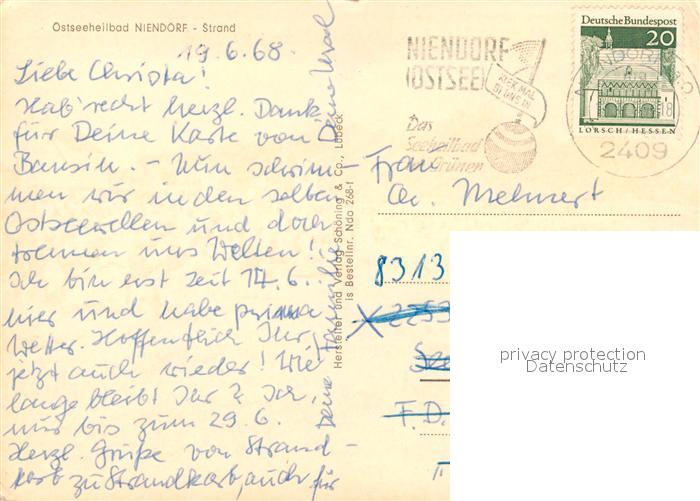 Ostseeheilbad NIENDORF - Strand
19.6.68.
Liebe Christa!
Hab' recht herzl. Dank
für Deine Karte von
Bansin. – Nun schwim-
men wir in den selben
Ostseewellen und doch
trennen uns Welten!
Ich bin erst seit 17.6.
hier und habe prima
Wetter. Hoffentlich Ihr
jetzt auch wieder! Wie
lange bleibt Ihr? Ich,
nur bis zum 29.6.
Herzl. Grüße von Strand-
korb zu Strandkorb, auch für
Deine
Hersteller und Verlag Schöning & Co., Lübeck
is Bestellnr. Ndo 268-f
NIENDORF
(OSTSEE)
KIEK MAL
BI UNS IN
Das
Seeheilbad
im Grünen
Deutsche Bundespost
20
LORSCH/HESSEN
NIENDORF
2409
Frau
Chr. Mehnert
8313
2253
F.D.
privacy protection
Datenschutz